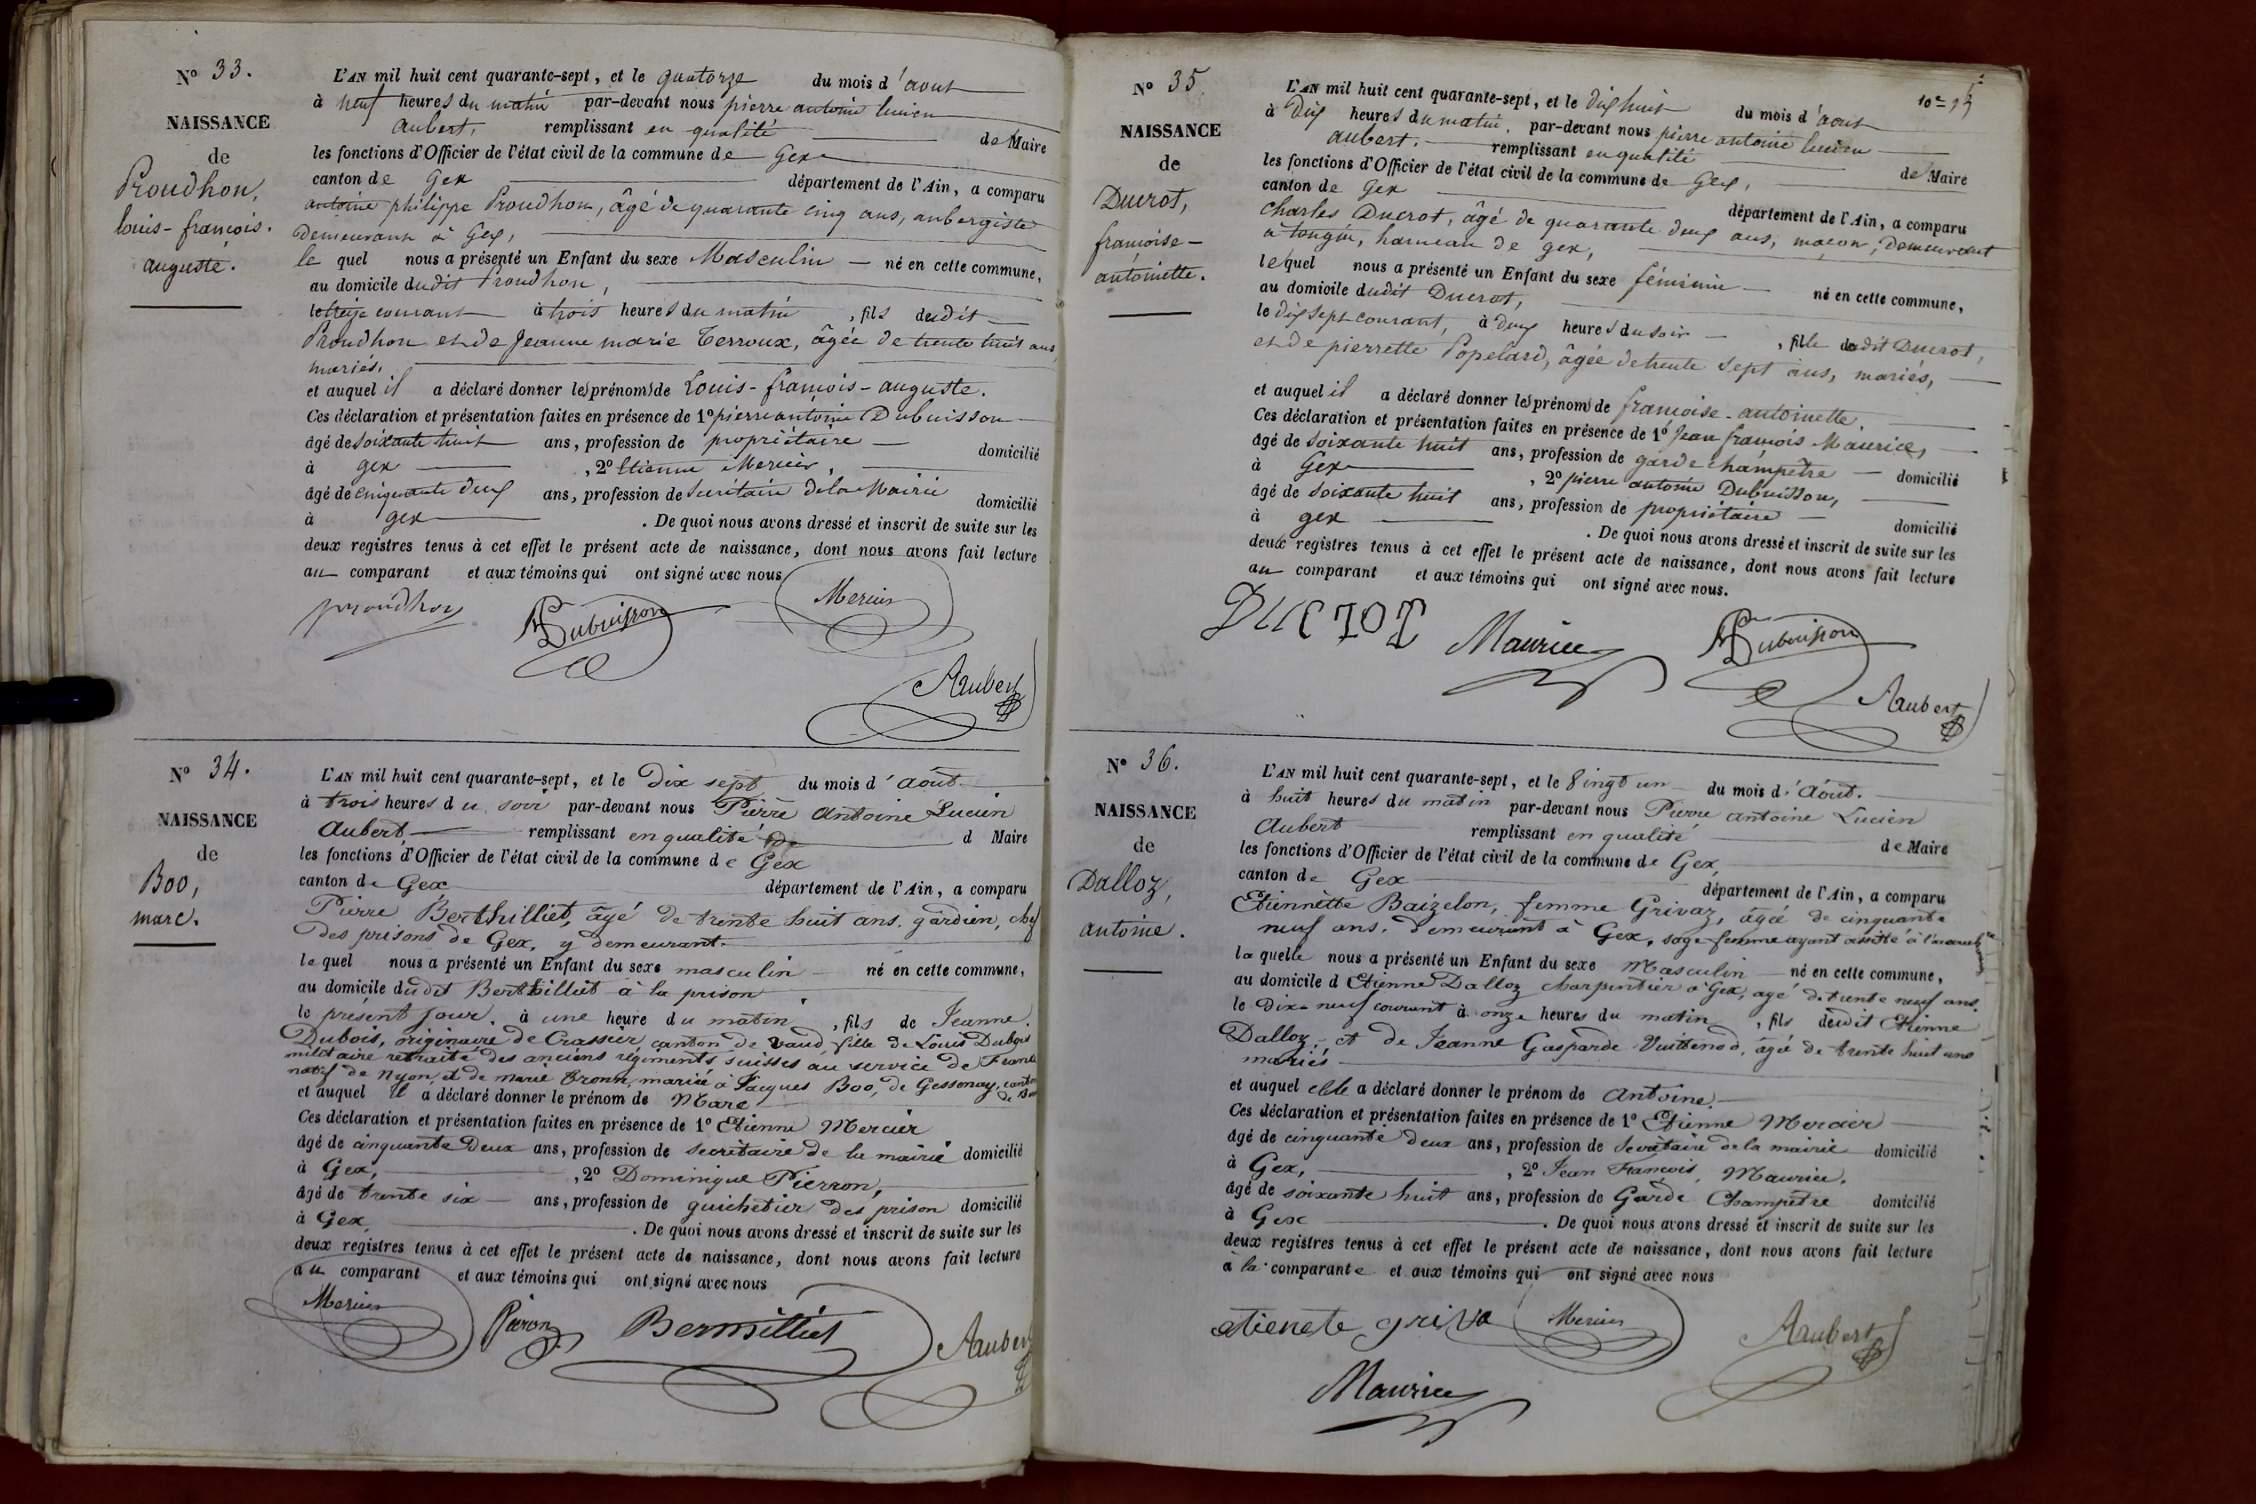 Nº 33.
NAISSANCE
de
Proudhon,
louis-françois.
auguste.
L'AN mil huit cent quarante-sept, et le quatorze du mois d'aout
à neuf heures du matin par-devant nous pierre antoine lucien
aubert, remplissant en qualité de Maire
les fonctions d'Officier de l'état civil de la commune de Gex
canton de Gex département de l'Ain, a comparu
antoine philippe Proudhon, âgé de quarante cinq ans, aubergiste
demeurant à Gex,
le quel nous a présenté un Enfant du sexe Masculin né en cette commune,
au domicile dudit Proudhon,
le treize courant à trois heures du matin, fils dudit
Proudhon et de Jeanne marie Terroux, âgée de trente huit ans,
mariés,
et auquel il a déclaré donner les prénoms de Louis-françois-auguste.
Ces déclaration et présentation faites en présence de 1º pierre antoine Dubuisson
âgé de soixante huit ans, profession de propriétaire domicilié
à gex, 2º Etienne Mercier,
âgé de cinquante deux ans, profession de Secrétaire de la Mairie domicilié
à gex. De quoi nous avons dressé et inscrit de suite sur les
deux registres tenus à cet effet le présent acte de naissance, dont nous avons fait lecture
au comparant et aux témoins qui ont signé avec nous
proudhon Dubuisson Mercier
Aubert
Nº 34.
NAISSANCE
de
Boo,
marc.
L'AN mil huit cent quarante-sept, et le Dix sept du mois d'Août
à trois heures du soir par-devant nous Pierre Antoine Lucien
Aubert remplissant en qualité de d Maire
les fonctions d'Officier de l'état civil de la commune de Gex
canton de Gex département de l'Ain, a comparu
Pierre Berthilliet, âgé de trente huit ans, gardien, chef
des prisons de Gex, y demeurant.
le quel nous a présenté un Enfant du sexe masculin né en cette commune,
au domicile dudit Berthilliet à la prison
le présent jour, à une heure du matin, fils de Jeanne
Dubois, originaire de Crassier canton de vaud fille de Louis Dubois
militaire retraité des anciens régiments suisses au service de France
natif de Nyon, et de marie bronn, mariée à Jacques Boo, de Gessonay, canton
de
et auquel il a déclaré donner le prénom de Marc
Ces déclaration et présentation faites en présence de 1º Etienne Mercier
âgé de cinquante Deux ans, profession de secrétaire de la mairie domicilié
à Gex, 2º Dominique Pierron,
âgé de trente six ans, profession de guichetier des prison domicilié
à Gex. De quoi nous avons dressé et inscrit de suite sur les
deux registres tenus à cet effet le présent acte de naissance, dont nous avons fait lecture
au comparant et aux témoins qui ont signé avec nous
Mercier Pieron Aubert
Nº 35.
NAISSANCE
de
Ducrot,
françoise-
antoinette.
L'AN mil huit cent quarante-sept, et le dix huit du mois d'aout
à Dix heures du matin, par-devant nous pierre antoine lucien
aubert. remplissant en qualité de Maire
les fonctions d'Officier de l'état civil de la commune de Gex,
canton de Gex département de l'Ain, a comparu
Charles Ducrot, âgé de quarante deux ans, maçon, demeurant
à tougin, hameau de gex,
lequel nous a présenté un Enfant du sexe féminin né en cette commune,
au domicile dudit Ducrot,
le dix sept courant, à deux heures du soir, fille dudit Ducrot,
et de pierrette Popelard, âgée de trente sept ans, mariés,
et auquel il a déclaré donner les prénoms de françoise-antoinette
Ces déclaration et présentation faites en présence de 1º Jean françois Maurice,
âgé de soixante huit ans, profession de garde champêtre domicilié
à Gex, 2º pierre antoine Dubuisson,
âgé de soixante huit ans, profession de propriétaire domicilié
à gex. De quoi nous avons dressé et inscrit de suite sur les
deux registres tenus à cet effet le présent acte de naissance, dont nous avons fait lecture
au comparant et aux témoins qui ont signé avec nous.
Ducrot Maurice Dubuisson
Aubert
Nº 36.
NAISSANCE
de
Dalloz,
antoine.
L'AN mil huit cent quarante-sept, et le vingt un du mois d'Août.
à huit heures du matin par-devant nous Pierre antoine Lucien
Aubert remplissant en qualité de Maire
les fonctions d'Officier de l'état civil de la commune de Gex,
canton de Gex département de l'Ain, a comparu
Etiennette Baizelon, femme Grivaz, âgée de cinquante
neuf ans, demeurant à Gex, sage-femme ayant assisté à l'accouchement
la quelle nous a présenté un Enfant du sexe Masculin né en cette commune,
au domicile d Etienne Dalloz charpentier à Gex, agé de trente neuf ans.
le Dix-neuf courant à onze heures du matin, fils dudit Etienne
Dalloz, et de Jeanne Gasparde Vuittenod, âgée de trente huit ans
mariés
et auquel elle a déclaré donner le prénom de Antoine.
Ces déclaration et présentation faites en présence de 1º Etienne Mercier
âgé de cinquante deux ans, profession de Secrétaire de la mairie domicilié
à Gex, 2º Jean François, Maurice.
âgé de soixante huit ans, profession de Garde Champêtre domicilié
à Gex. De quoi nous avons dressé et inscrit de suite sur les
deux registres tenus à cet effet le présent acte de naissance, dont nous avons fait lecture
à la comparante et aux témoins qui ont signé avec nous
etienete griva Mercier Aubert
Maurice